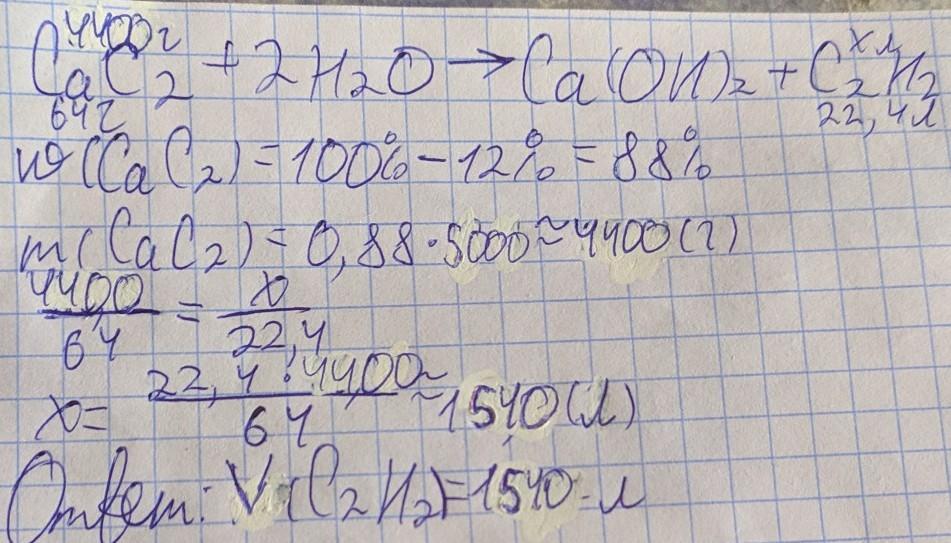 4400г хл
CaC2 + 2H2O → Ca(OH)2 + C2H2
64г 22,4л
w(CaC2) = 100% - 12% = 88%
m(CaC2) = 0,88 · 5000 ≈ 4400(г)
4400/64 = x/22,4
x = 22,4 · 4400/64 ≈ 1540(л)
Ответ: V(C2H2) = 1540 л